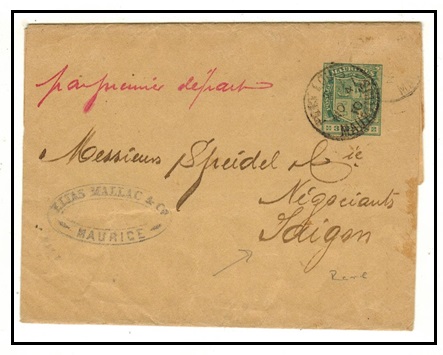 par premier départ
Messieurs Speidel & Cie
Négociants
Saigon
ELIAS MALLAC & Co
MAURICE